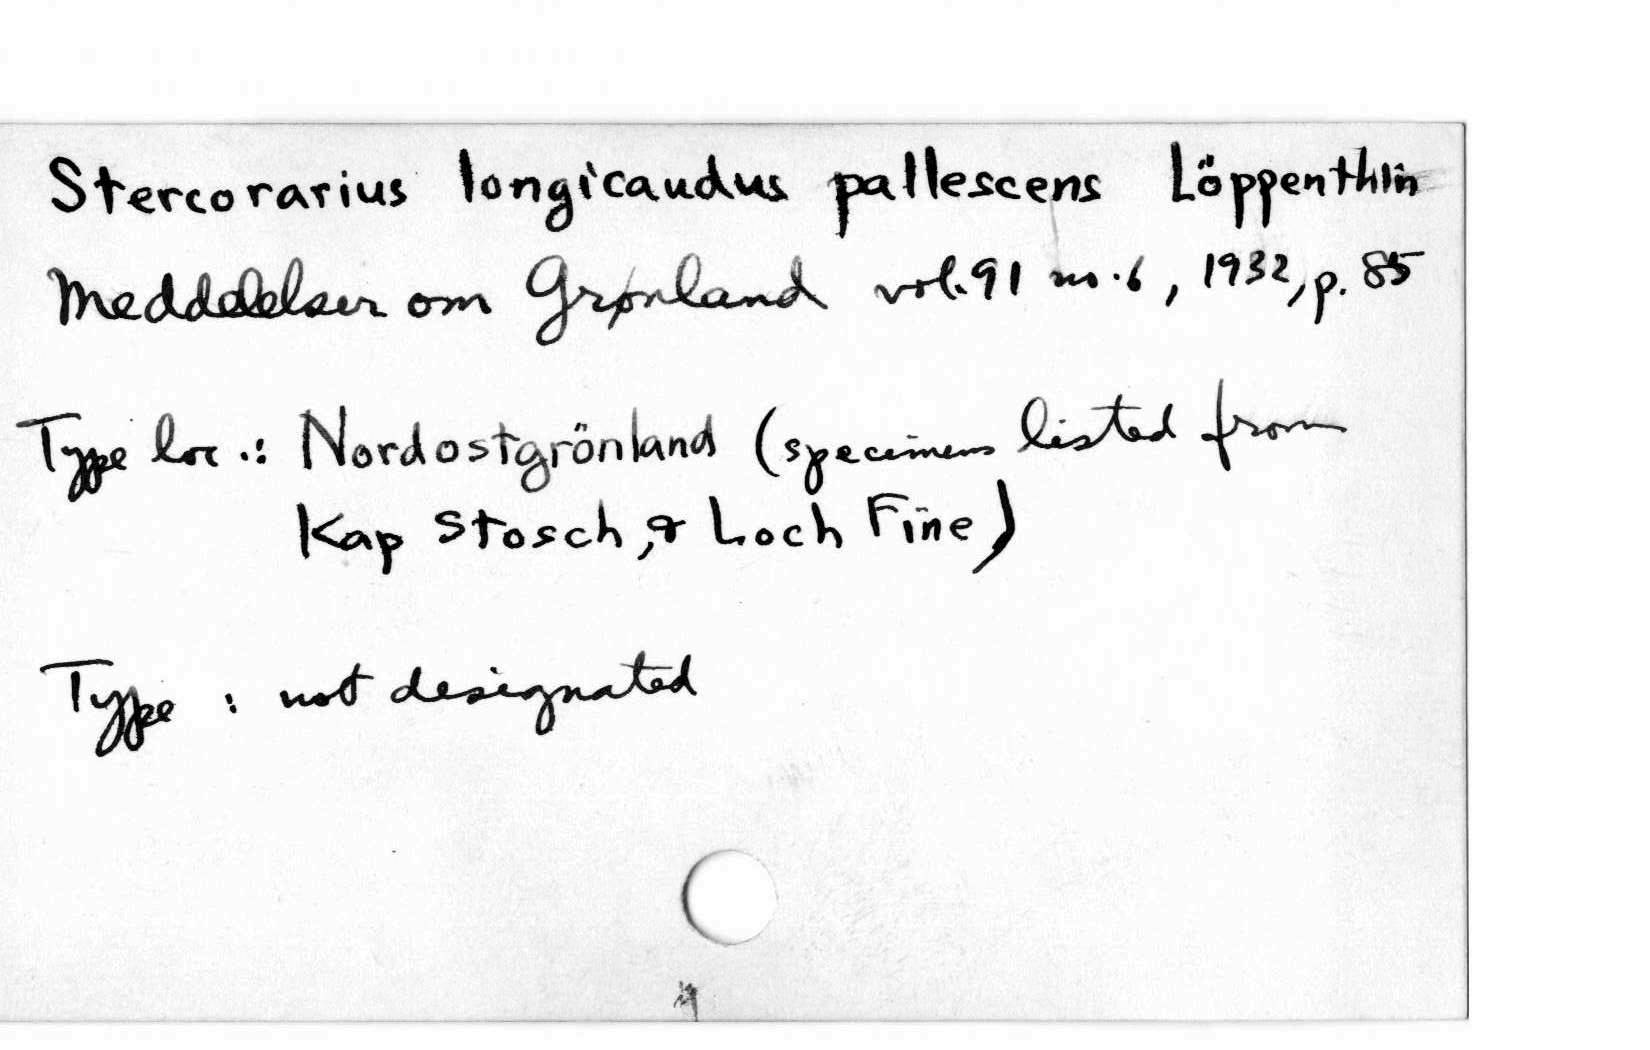 Stercorarius longicaudus pallescens Löppenthin
Meddelelser om Grønland vol. 91 no. 6, 1932, p. 85
Type loc.: Nordostgrönland (specimens listed from
Kap Stosch, & Loch Fine)
Type : not designated